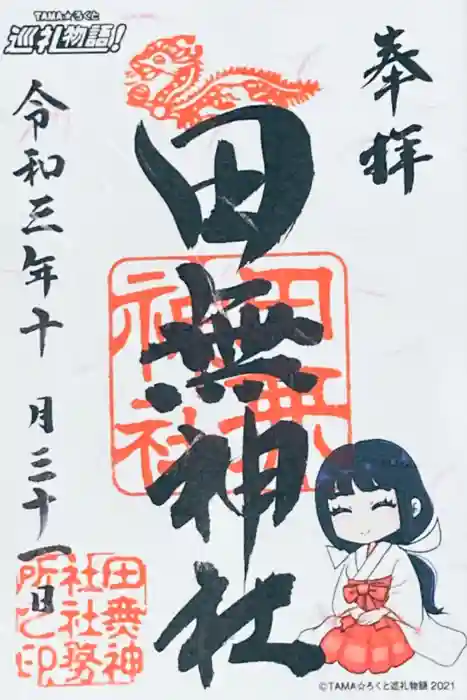 TAMA☆ろくと
巡礼物語!
奉拝
田無神社
令和三年十月三十一日
田無神社
田無神
社社務
所之印
©TAMA☆ろくと巡礼物語 2021